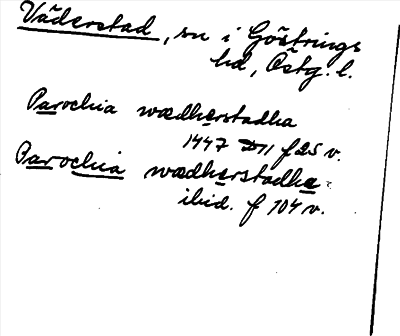 Väderstad, sn i Göstrings
hd, Östg. l.
Parochia wædherstadha
1447 D 11 f 25 v.
Parochia wædherstadhe
ibid. f 104 v.